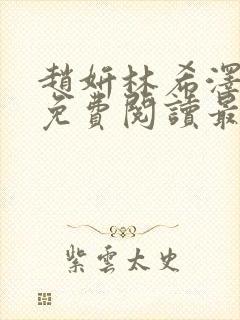 趙妍林希澤
免費閱讀最
紫雲太史